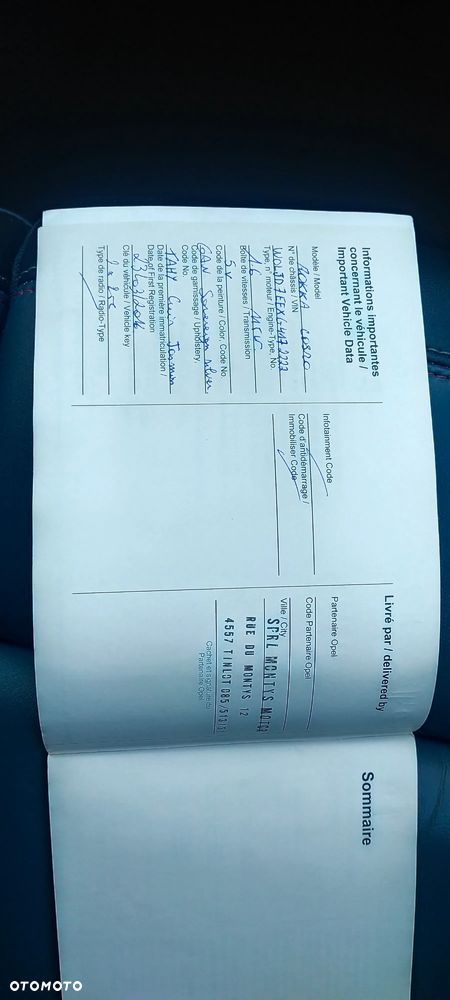 Informations importantes
concernant le véhicule /
Important Vehicle Data
Modèle / Model
MOKKA COSMO
N° de châssis / VIN
Type, n° moteur / Engine-Type, No.
1.6
Boîte de vitesses / Transmission
5V
Code de la peinture / Color, Code No.
GAN Sovereign silver
Code de garnissage / Upholstery,
Code No.
TAHY Cuir
Date de la première immatriculation /
Date of First Registration
Clé du véhicule / Vehicle key
Type de radio / Radio-Type
Infotainment Code
Code d'antidémarrage /
Immobiliser Code
Livré par / delivered by
Partenaire Opel
Code Partenaire Opel
Ville / City
SPRL MONTYS MOTOR
RUE DU MONTYS 12
4557 TINLOT 085/
Cachet et signature du
Partenaire Opel
Sommaire
OTOMOTO